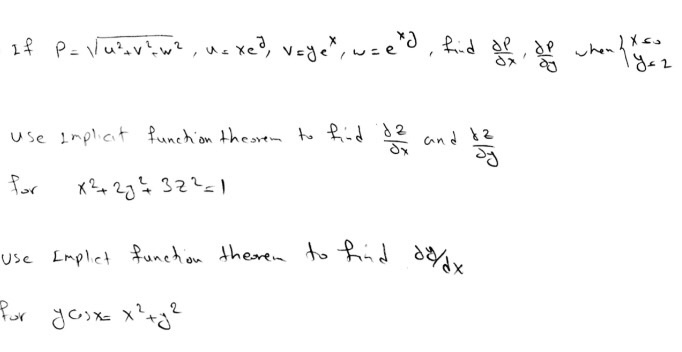 If P = √u²+v²+w², u = xe^y, v = ye^x, w = e^xy, find ∂P/∂x, ∂P/∂y when { x = 0 y = 2
use Implicit function theorem to find ∂z/∂x and ∂z/∂y
for x² + 2y² + 3z² = 1
use Implict function theorem to find ∂y/dx
for y cos x = x² + y²